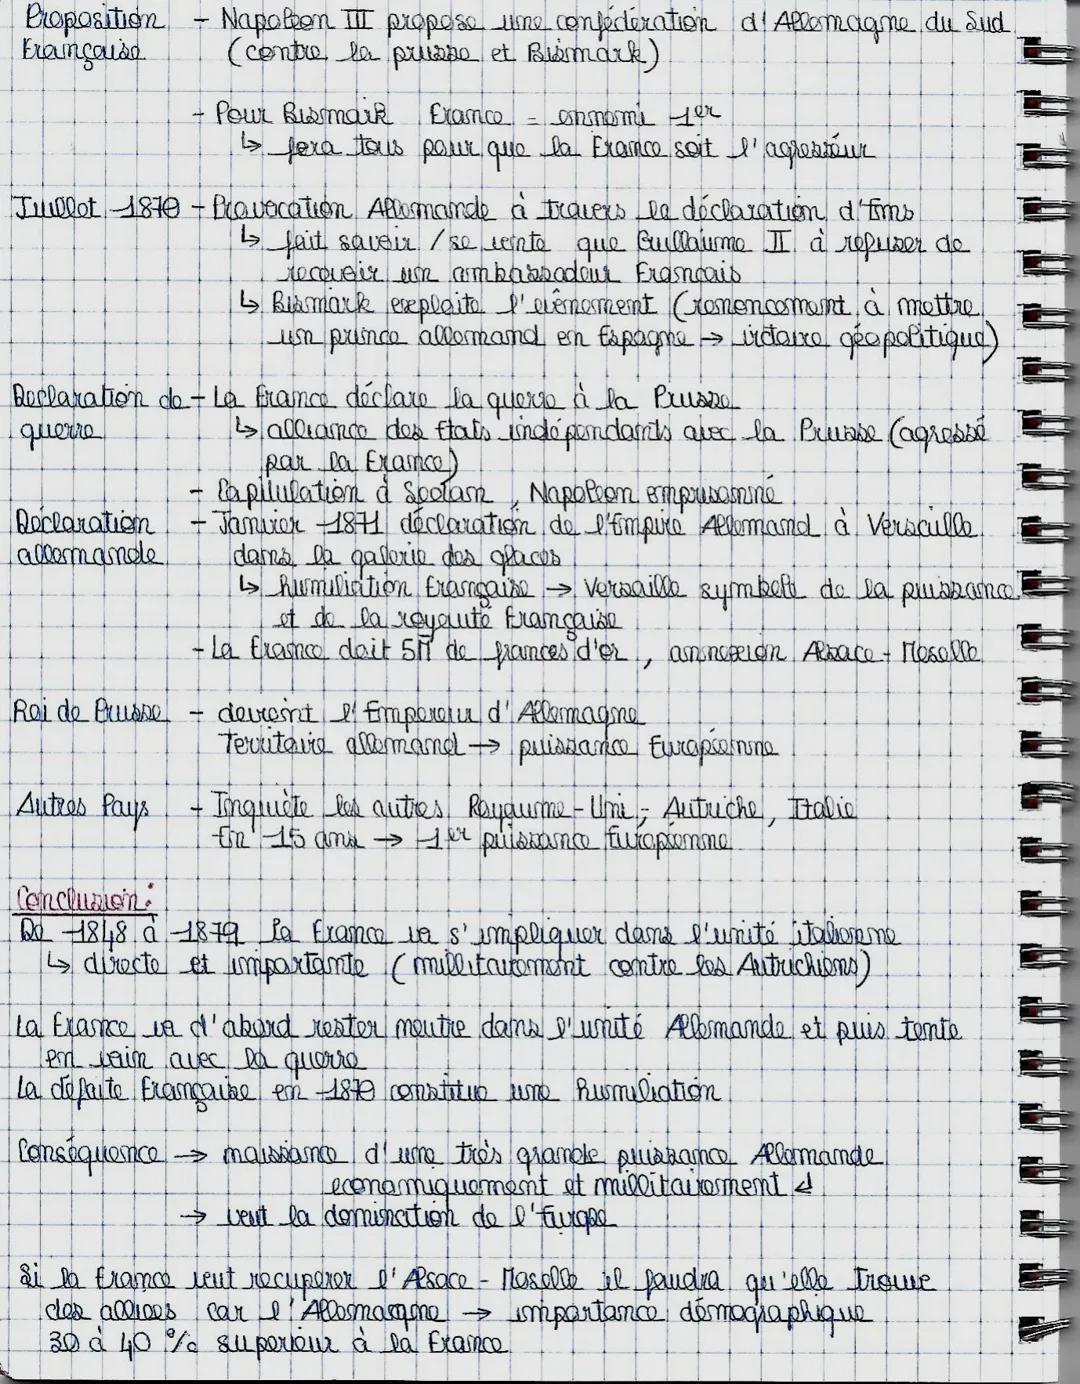 Proposition - Napoléon III propose une confédération d'Allemagne du Sud
Française (contre la prusse et Bismark)
- Pour Bismark France = ennemi 1er
↳ fera tous pour que la France soit l'agresseur
Juillet 1870 - Provocation Allemande à travers la déclaration d'Ems
↳ fait savoir / se vente que Guillaume II à refuser de
recevoir un ambassadeur Français
↳ Bismark exploite l'evènement (renoncement à mettre
un prince allemand en Espagne → victoire géopolitique)
Declaration de - La France déclare la guerre à la Prusse
guerre ↳ alliance des Etats indépendants avec la Prusse (agressé
par la France)
- Capitulation à Sedan, Napoléon emprisonné
Déclaration - Janvier 1871 déclaration de l'Empire Allemand à Versaille
allemande dans la galerie des glaces
↳ humiliation Française → Versaille symbole de la puissance
et de la royauté Française
- La France doit 5M de frances d'or, annnexion Alsace - Moselle
Roi de Prusse - devient l'Empereur d'Allemagne
Territoire allemand → puissance Européenne
Autres Pays - Inquiète les autres Royaume-Uni, Autriche, Italie
En 15 ans → 1er puissance Européenne
Conclusion :
De 1848 à 1870 la France va s'impliquer dans l'unité italienne
↳ directe et importante (millitairement contre les Autrichiens)
La France va d'abord rester neutre dans l'unité Allemande et puis tente
en vain avec la guerre
La défaite Française en 1870 constitue une humiliation
Conséquence → naissance d'une très grande puissance Allemande
economiquement et millitairement
→ veut la domination de l'Europe
Si la France veut recuperer l'Alsace - Moselle il faudra qu'elle trouve
des allises car l'Allemagne → importance démographique
30 à 40 % superieur à la France